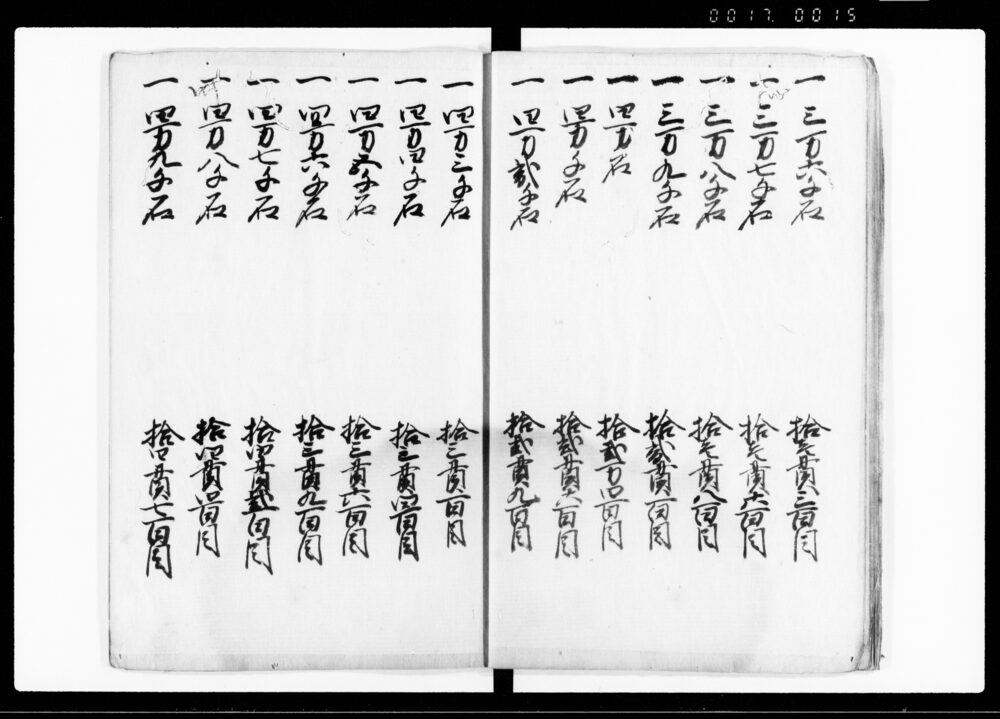 0017. 0015
一 三万六千石 拾壱貫三百目
一 三万七千石 拾壱貫六百目
一 三万八千石 拾壱貫八百目
一 三万九千石 拾弐貫百目
一 四万石 拾弐貫四百目
一 四万千石 拾弐貫六百目
一 四万弐千石 拾弐貫九百目
一 四万三千石 拾三貫百目
一 四万四千石 拾三貫四百目
一 四万五千石 拾三貫六百目
一 四万六千石 拾三貫九百目
一 四万七千石 拾四貫弐百目
一 四万八千石 拾四貫四百目
一 四万九千石 拾四貫七百目